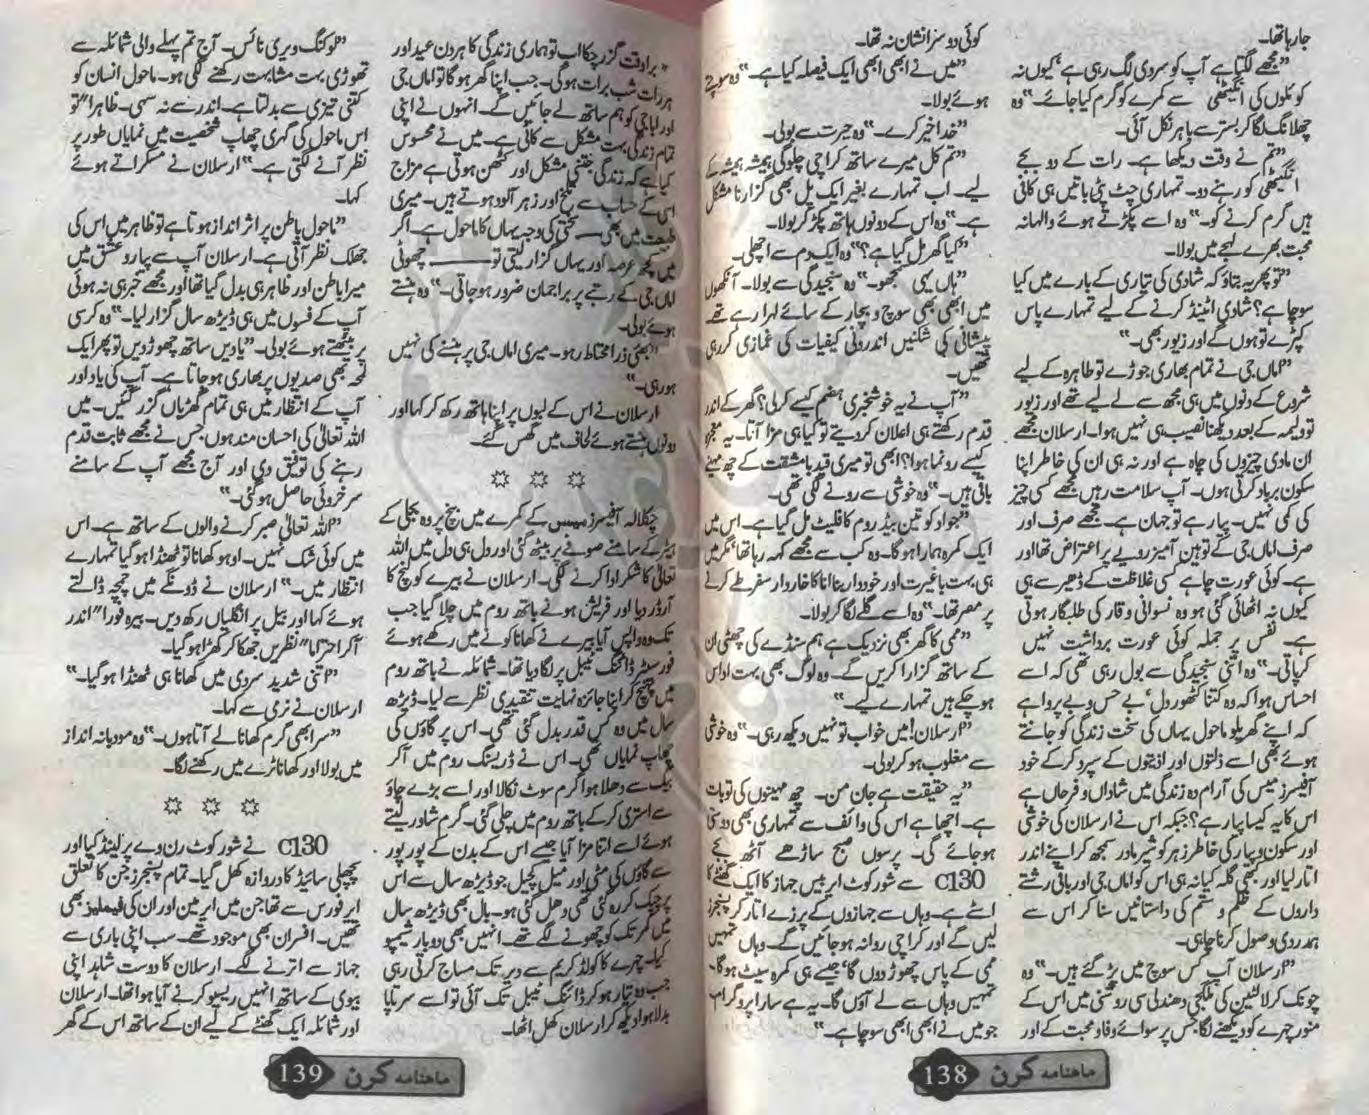 جا رہا تھا۔
”مجھے لگتا ہے آپ کو سردی لگ رہی ہے‘ کیوں نہ
کوئلوں کی انگیٹھی سے کمرے کو گرم کیا جائے۔“ وہ
چھلانگ لگا کر بستر سے باہر نکل آئی۔
”تم نے وقت دیکھا ہے۔ رات کے دو بجے
انگیٹھی کو رہنے دو۔ تمہاری چٹ پٹی باتیں ہی کافی
ہیں گرم کرنے کو۔“ وہ اسے پکڑتے ہوئے والہانہ
محبت بھرے لہجے میں بولا۔
”تو پھر یہ بتاؤ کہ شادی کی تیاری کے بارے میں کیا
سوچا ہے؟ شادی اٹینڈ کرنے کے لیے تمہارے پاس
کپڑے تو ہوں گے اور زیور بھی۔“
”اماں جی نے تمام بھاری جوڑے تو طاہرہ کے لیے
شروع کے دنوں میں ہی مجھ سے لے لیے تھے اور زیور
تو ولیمہ کے بعد دیکھنا نصیب ہی نہیں ہوا۔ ارسلان مجھے
ان مادی چیزوں کی چاہ ہے اور نہ ہی ان کی خاطر اپنا
سکون برباد کرتی ہوں۔ آپ سلامت رہیں مجھے کسی چیز
کی کمی نہیں۔ پیار ہے تو جہان ہے۔ مجھے صرف اور
صرف اماں جی کے توہین آمیز رویے پر اعتراض تھا اور
ہے۔ کوئی عورت چاہے کسی غلاظت کے ڈھیر سے ہی
کیوں نہ اٹھائی گئی ہو وہ نسوانی وقار کی طلبگار ہوتی
ہے۔ نفس پر حملہ کوئی عورت برداشت نہیں
کرپاتی۔“ وہ اتنی سنجیدگی سے بول رہی تھی کہ اسے
احساس ہوا کہ وہ کتنا کٹھور دل‘ بے حس و بے پروا ہے
کہ اپنے گھریلو ماحول یہاں کی سخت زندگی کو جانتے
ہوئے بھی اسے ذلتوں اور اذیتوں کے سپرد کر کے خود
آفیسرز میس کی آرام دہ زندگی میں شاداں و فرحاں ہے
اس کا یہ کیسا پیار ہے؟ جبکہ اس نے ارسلان کی خوشی
اور سکون و پیار کی خاطر زہر کو شیر مادر سمجھ کر اپنے اندر
اتار لیا اور کبھی گلہ کیا نہ ہی اس کو اماں جی اور باقی رشتے
داروں کے ظلم و ستم کی داستانیں سنا کر اس سے
ہمدردی وصول کرنا چاہی۔
”ارسلان آپ کس سوچ میں پڑ گئے ہیں۔“ وہ
چونک کر لالٹین کی ملگجی دھندلی سی روشنی میں اس کے
منور چہرے کو دیکھنے لگا‘ جس پر سوائے وفا و محبت کے اور
کوئی دوسرا نشان نہ تھا۔
”میں نے ابھی ابھی ایک فیصلہ کیا ہے۔“ وہ سوچتے
ہوئے بولا۔
”خدا خیر کرے۔“ وہ حیرت سے بولی۔
”تم کل میرے ساتھ کراچی چلو گی ہمیشہ ہمیشہ کے
لیے۔ اب تمہارے بغیر ایک پل بھی گزارنا مشکل
ہے۔“ وہ اس کے دونوں ہاتھ پکڑ کر بولا۔
”کیا گھر مل گیا ہے؟“ وہ ایک دم سے اچھلی۔
”ہاں یہی سمجھو۔“ وہ سنجیدگی سے بولا۔ آنکھوں
میں ابھی بھی سوچ و بچار کے سائے لہرا رہے تھے
پیشانی کی شکنیں اندرونی کیفیات کی غمازی کر رہی
تھیں۔
”آپ نے یہ خوشخبری ہضم کیسے کر لی؟ گھر کے اندر
قدم رکھتے ہی اعلان کر دیتے تو کیا ہی مزا آتا۔ یہ معجزہ
کیسے رونما ہوا؟ ابھی تو میری قید بامشقت کے چھ مہینے
باقی ہیں۔“ وہ خوشی سے رونے لگی تھی۔
”جواد کو تین بیڈ روم کا فلیٹ مل گیا ہے۔ اس میں
ایک کمرہ ہمارا ہوگا۔ وہ کب سے مجھے کہہ رہا تھا‘ مگر میں
ہی بہت با غیرت اور خوددار بنا انا کا خاردار سفر طے کرنے
پر مصر تھا۔“ وہ اسے گلے لگا کر بولا۔
”ممی کا گھر بھی نزدیک ہے ہم سنڈے کی چھٹی ان
کے ساتھ گزارا کریں گے۔ وہ لوگ بھی بہت اداس
ہو چکے ہیں تمہارے لیے۔“
”ارسلان! میں خواب تو نہیں دیکھ رہی۔“ وہ خوشی
سے مغلوب ہو کر بولی۔
”یہ حقیقت ہے جان من۔ چھ مہینوں کی تو بات
ہے۔ اچھا ہے اس کی وائف سے تمہاری بھی دوستی
ہو جائے گی۔ پرسوں صبح ساڑھے آٹھ بجے
C130 سے شورکوٹ ایربیس جہاز کا ایک گھنٹے کا
اسٹے ہے۔ وہاں سے جہازوں کے پرزے اتار کر پسنجرز
لیں گے اور کراچی روانہ ہو جائیں گے۔ وہاں تمہیں
ممی کے پاس چھوڑ دوں گا‘ جیسے ہی کمرہ سیٹ ہوگا۔
تمہیں وہاں سے لے آؤں گا۔ یہ ہے سارا پروگرام‘
جو میں نے ابھی ابھی سوچا ہے۔“
ماہنامہ کرن 138
”برا وقت گزر چکا اب تو ہماری زندگی کا ہر دن عید اور
ہر رات شب برات ہوگی۔ جب اپنا گھر ہوگا تو اماں جی
اور اباجی کو ہم ساتھ لے جائیں گے۔ انہوں نے اپنی
تمام زندگی بہت مشکل سے کاٹی ہے۔ میں نے محسوس
کیا ہے کہ زندگی جتنی مشکل اور کٹھن ہوتی ہے مزاج
اسی کے حساب سے تلخ اور زہر آلود ہوتے ہیں۔ میری
طبیعت میں بھی سختی کی وجہ یہاں کا ماحول ہے۔ اگر
میں کچھ عرصہ اور یہاں گزار لیتی تو ــــــ چھوٹی
اماں جی کے رتبے پر براجمان ضرور ہو جاتی۔“ وہ ہنستے
ہوئے بولی۔
”بھئی ذرا محتاط رہو۔ میری اماں جی پر ہنسنے کی نہیں
ہو رہی۔“
ارسلان نے اس کے لبوں پر اپنا ہاتھ رکھ کر کہا اور
دونوں ہنستے ہوئے لحاف میں گھس گئے۔
☼ ☼ ☼
چکلالہ آفیسرز میس کے کمرے میں پہنچ کر وہ بجلی کے
ہیٹر کے سامنے صوفے پر بیٹھ گئی اور دل ہی دل میں اللہ
تعالیٰ کا شکر ادا کرنے لگی۔ ارسلان نے بیرے کو لنچ کا
آرڈر دیا اور فریش ہونے باتھ روم میں چلا گیا جب
تک وہ واپس آیا بیرے نے کھانا کونے میں رکھے ہوئے
فور سیٹر ڈائننگ ٹیبل پر لگا دیا تھا۔ شمائلہ نے باتھ روم
میں پہنچ کر اپنا جائزہ نہایت تنقیدی نظر سے لیا۔ ڈیڑھ
سال میں وہ کس قدر بدل گئی تھی۔ اس پر گاؤں کی
چھاپ نمایاں تھی۔ اس نے ڈریسنگ روم میں آ کر
بیگ سے دھلا ہوا گرم سوٹ نکالا اور اسے بڑے چاؤ
سے استری کر کے باتھ روم میں چلی گئی۔ گرم شاور لیتے
ہوئے اسے اتنا مزا آیا جیسے اس کے بدن کے پور پور
سے گاؤں کی مٹی اور میل کچیل جو ڈیڑھ سال سے اس
پر چپک کر رہ گئی تھی دھل گئی ہو۔ بال بھی ڈیڑھ سال
میں کمر تک کو چھونے لگے تھے۔ انہیں بھی دو بار شیمپو
کیا۔ چہرے کا کولڈ کریم سے دیر تک مساج کرتی رہی
جب وہ تیار ہو کر ڈائننگ ٹیبل تک آئی تو اسے سر تا پا
بدلا ہوا دیکھ کر ارسلان کھل اٹھا۔
”لوکنگ ویری نائس۔ آج تم پہلے والی شمائلہ سے
تھوڑی بہت مشابہت رکھنے لگی ہو۔ ماحول انسان کو
کتنی تیزی سے بدلتا ہے۔ اندر سے نہ سہی۔ ظاہرا“ تو
اس ماحول کی گہری چھاپ شخصیت میں نمایاں طور پر
نظر آنے لگتی ہے۔“ ارسلان نے مسکراتے ہوئے
کہا۔
”ماحول باطن پر اثر انداز ہوتا ہے تو ظاہر میں اس کی
جھلک نظر آتی ہے۔ ارسلان آپ سے پیار و عشق میں
میرا باطن اور ظاہر ہی بدل گیا تھا اور مجھے خبر ہی نہ ہوئی
آپ کے فسوں میں ہی ڈیڑھ سال گزار لیا۔“ وہ کرسی
پر بیٹھتے ہوئے بولی۔ ”یادیں ساتھ چھوڑ دیں تو پھر ایک
لمحہ بھی صدیوں پر بھاری ہو جاتا ہے۔ آپ کی یاد اور
آپ کے انتظار میں ہی تمام گھڑیاں گزر گئیں۔ میں
اللہ تعالیٰ کی احسان مند ہوں جس نے مجھے ثابت قدم
رہنے کی توفیق دی اور آج مجھے آپ کے سامنے
سرخروئی حاصل ہو گئی۔“
”اللہ تعالیٰ صبر کرنے والوں کے ساتھ ہے۔ اس
میں کوئی شک نہیں۔ اوہو کھانا تو ٹھنڈا ہو گیا تمہارے
انتظار میں۔“ ارسلان نے ڈونگے میں چمچہ ڈالتے
ہوئے کہا اور بیل پر انگلیاں رکھ دیں۔ بیرہ فورا“ اندر
آ کر احتراما“ نظریں جھکا کر کھڑا ہو گیا۔
”اتنی شدید سردی میں کھانا ہی ٹھنڈا ہو گیا۔“
ارسلان نے نرمی سے کہا۔
”سر ابھی گرم کھانا لے آتا ہوں۔“ وہ مودبانہ انداز
میں بولا اور کھانا ٹرے میں رکھنے لگا۔
☼ ☼ ☼
C130 نے شورکوٹ رن وے پر لینڈ کیا اور
پچھلی سائیڈ کا دروازہ کھل گیا۔ تمام پسنجرز جن کا تعلق
ایر فورس سے تھا جن میں ایرمین اور ان کی فیملیز بھی
تھیں۔ افسران بھی موجود تھے۔ سب اپنی باری سے
جہاز سے اترنے لگے۔ ارسلان کا دوست شاہد اپنی
بیوی کے ساتھ انہیں ریسیو کرنے آیا ہوا تھا۔ ارسلان
اور شمائلہ ایک گھنٹے کے لیے ان کے ساتھ اس کے گھر
ماہنامہ کرن 139